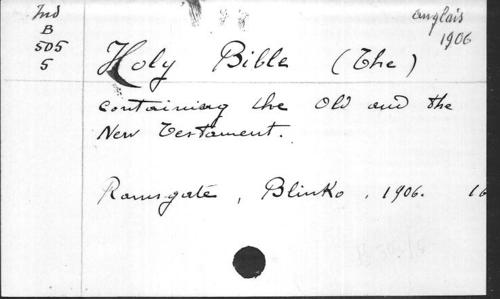 Ind
B
505
5
anglais
1906
Holy Bible (The)
containing the Old and the
New Testament.
Ramsgate, Blinko, 1906. 16